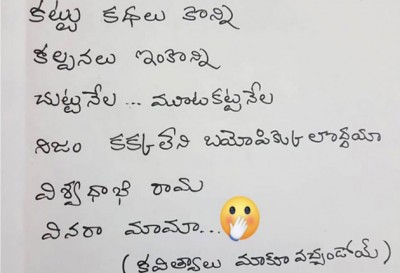 కట్టు కథలు కొన్ని
కల్పనలు ఇంకొన్ని
చుట్టనేల ... మూటకట్టనేల
నిజం కక్కలేని బయోపిక్కు లొద్దయా
విశ్వదాభి రామ
వినరా మామా...
(కవిత్వాలు మాకూ వచ్చండోయ్)